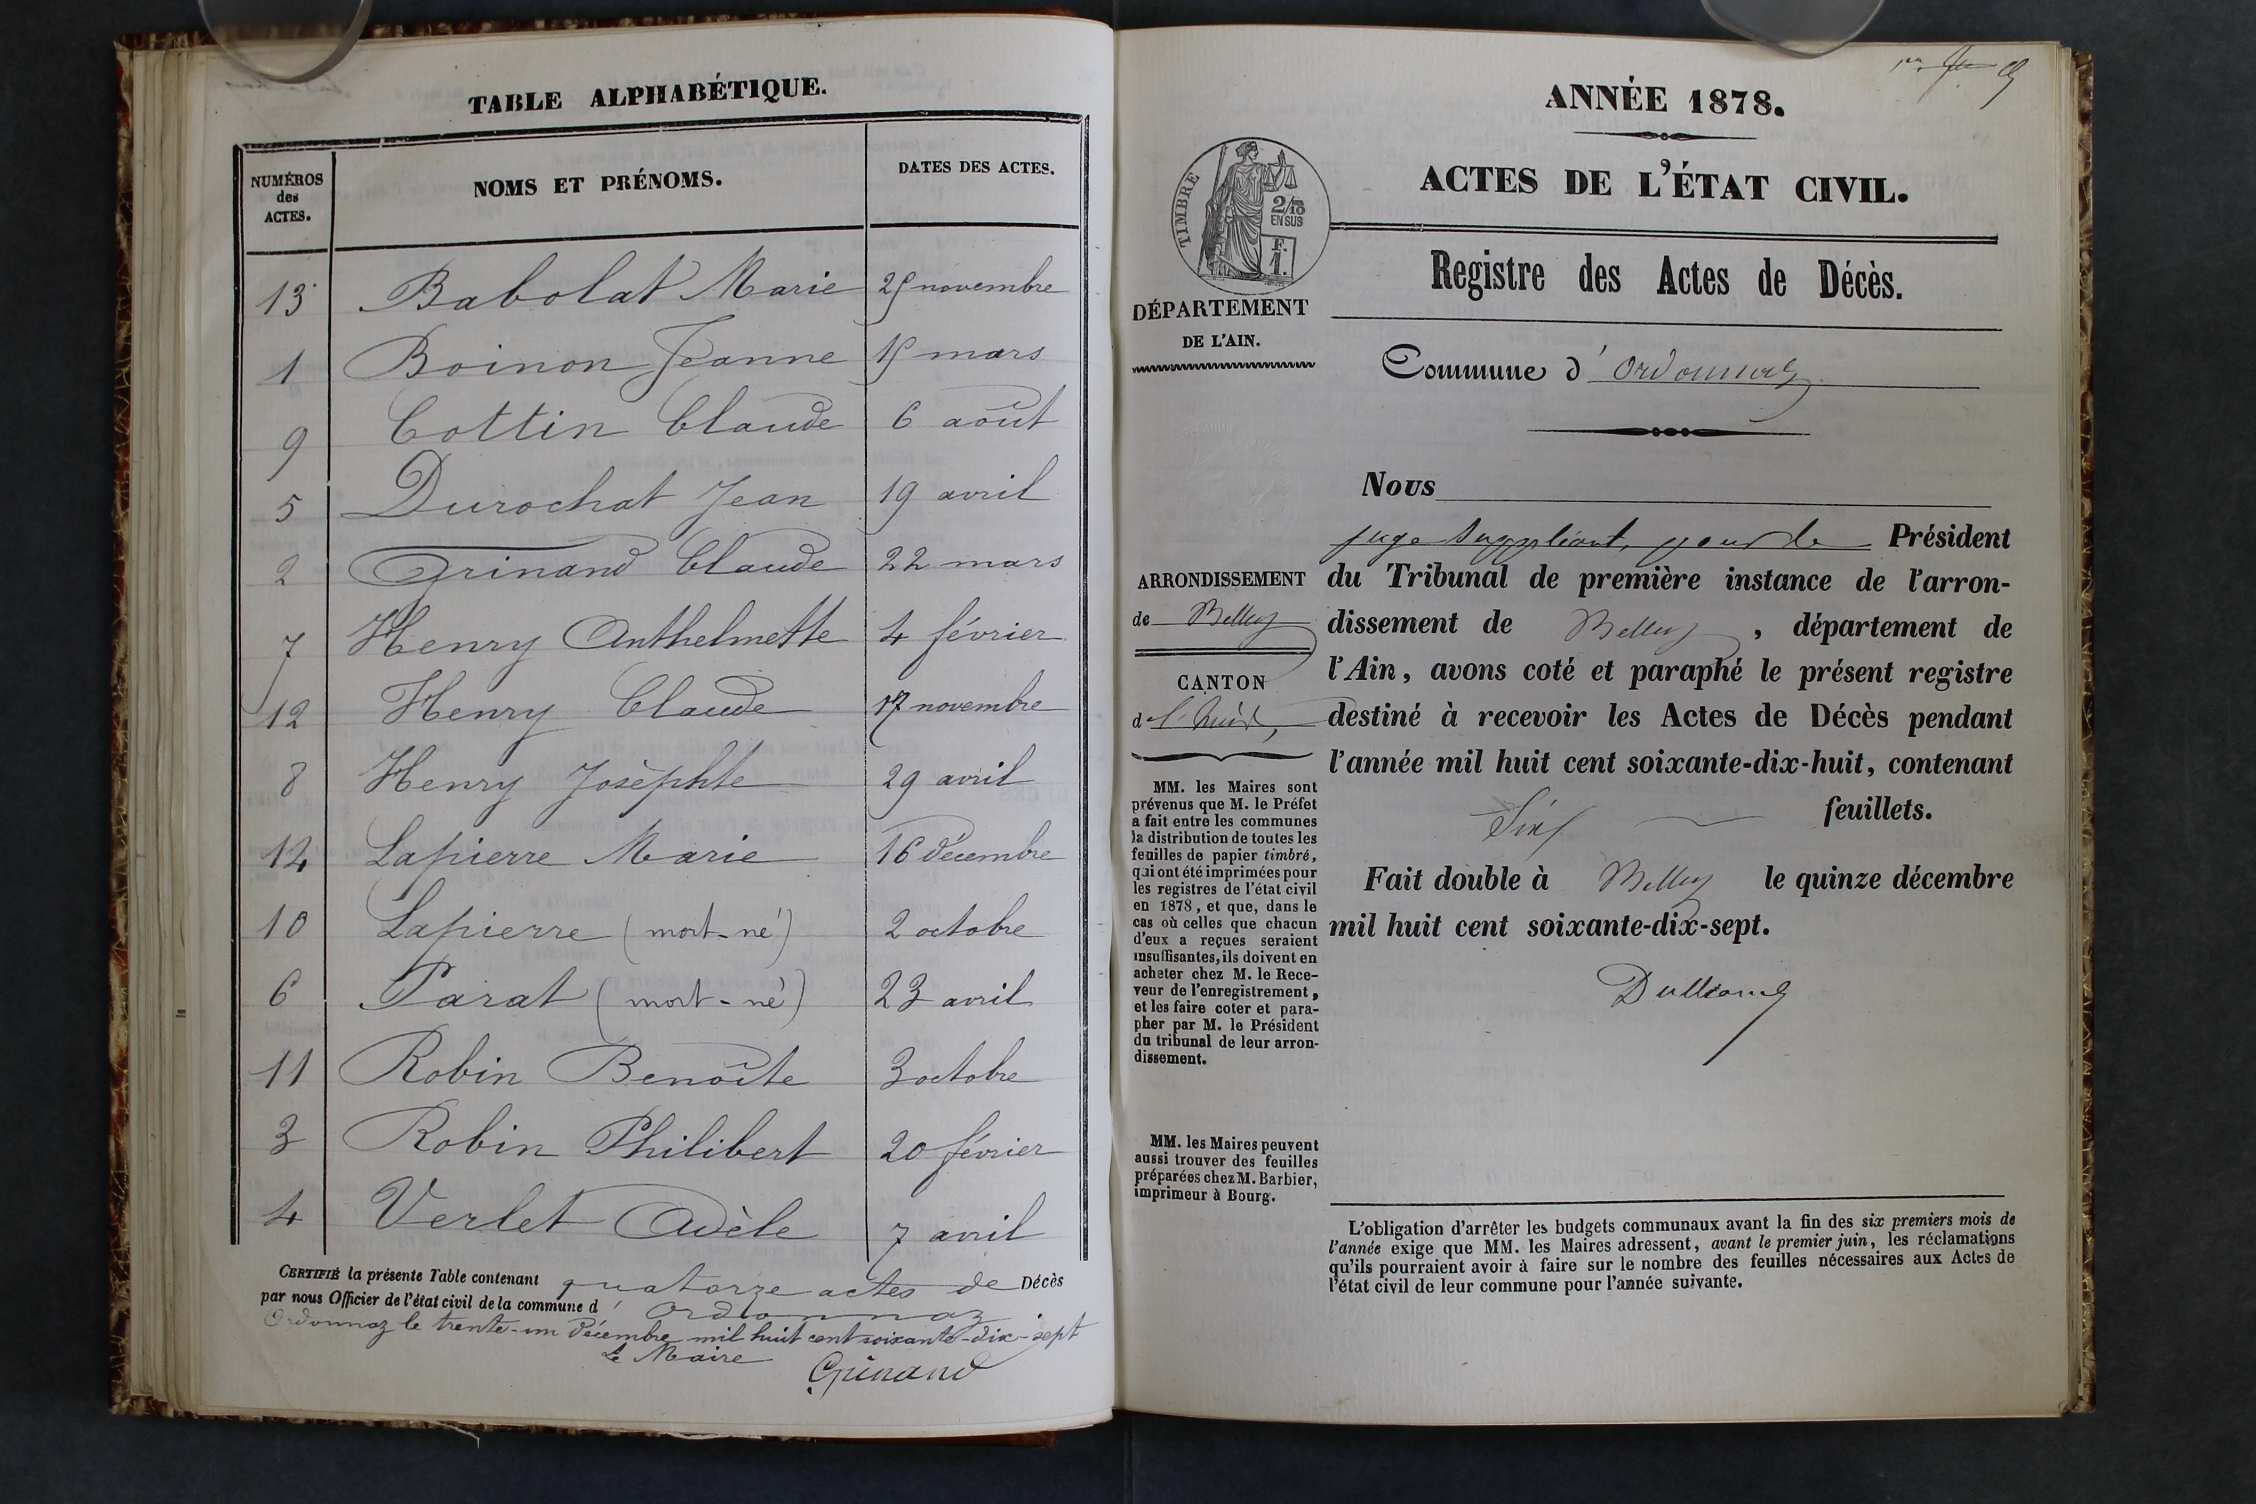 TABLE ALPHABÉTIQUE.
NUMÉROS des ACTES. NOMS ET PRÉNOMS. DATES DES ACTES.
13 Babolat Marie 25 novembre
1 Boinon Jeanne 15 mars
9 Cottin Claude 6 août
5 Durochat Jean 19 avril
2 Grinand Claude 22 mars
7 Henry Anthelmette 4 février
12 Henry Claude 17 novembre
8 Henry Josèphte 29 avril
14 Lapierre Marie 16 décembre
10 Lapierre (mort-né) 2 octobre
6 Parat (mort-né) 23 avril
11 Robin Benoîte 3 octobre
3 Robin Philibert 20 février
4 Verlet Adèle 7 avril
CERTIFIÉ la présente Table contenant quatorze actes de Décès
par nous Officier de l'état civil de la commune d' Ordonnaz
Ordonnaz le trente-un décembre mil huit cent soixante-dix-sept
Le Maire
Grinand
ANNÉE 1878.
ACTES DE L'ÉTAT CIVIL.
TIMBRE
2/10
EN SUS
F.
1.
Registre des Actes de Décès.
DÉPARTEMENT
DE L'AIN.
Commune d' Ordonnaz
Nous
juge suppléant, pour le Président
du Tribunal de première instance de l'arron-
dissement de Belley, département de
l'Ain, avons coté et paraphé le présent registre
destiné à recevoir les Actes de Décès pendant
l'année mil huit cent soixante-dix-huit, contenant
Six feuillets.
Fait double à Belley le quinze décembre
mil huit cent soixante-dix-sept.
ARRONDISSEMENT
de Belley
CANTON
de
MM. les Maires sont
prévenus que M. le Préfet
a fait entre les communes
la distribution de toutes les
feuilles de papier timbré,
qui ont été imprimées pour
les registres de l'état civil
en 1878, et que, dans le
cas où celles que chacun
d'eux a reçues seraient
insuffisantes, ils doivent en
acheter chez M. le Rece-
veur de l'enregistrement,
et les faire coter et para-
pher par M. le Président
du tribunal de leur arron-
dissement.
MM. les Maires peuvent
aussi trouver des feuilles
préparées chez M. Barbier,
imprimeur à Bourg.
L'obligation d'arrêter les budgets communaux avant la fin des six premiers mois de
l'année exige que MM. les Maires adressent, avant le premier juin, les réclamations
qu'ils pourraient avoir à faire sur le nombre des feuilles nécessaires aux Actes de
l'état civil de leur commune pour l'année suivante.